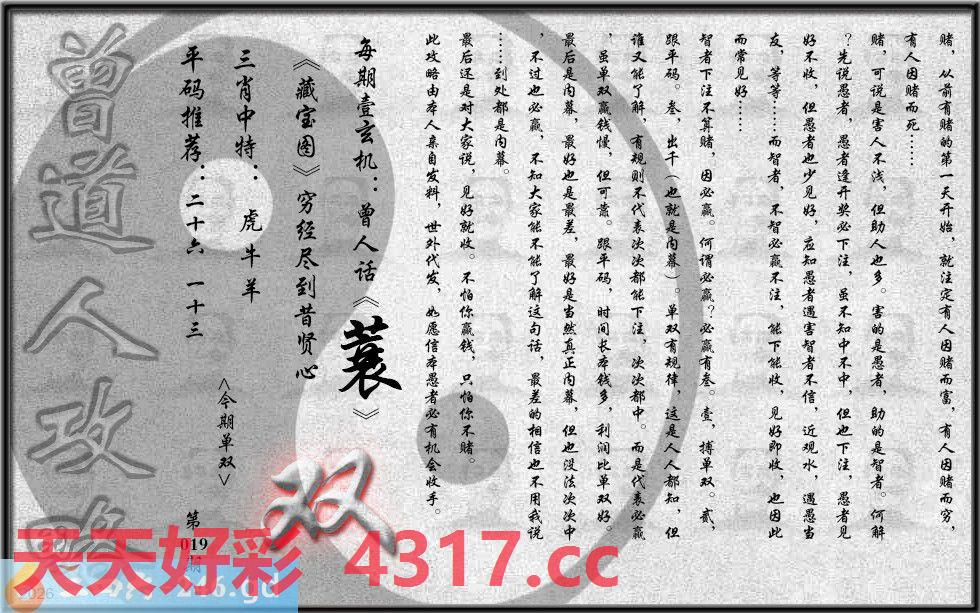 赌，从前有赌的第一天开始，就注定有人因赌而富，有人因赌而穷，
有人因赌而死……
赌，可说是害人不浅，但助人也多。害的是愚者，助的是智者。何解
？先说愚者，愚者逢开奖必下注，虽不知中不中，但也下注，愚者见
好不收，但愚者也少见好，应知愚者遇害智者不信，近观水，遇愚当
友，等等……而智者，不智必赢不注，能下能收，见好即收，也因此
而常见好……
智者下注不算赌，因必赢。何谓必赢？必赢有叁。壹，搏单双。贰，
跟平码。叁，出千（也就是内幕）。单双有规律，这是人人都知，但
谁又能了解，有规则不代表次次都能下注，次次都中。而是代表必赢
，虽单双赢钱慢，但可靠。跟平码，时间长本钱多，利润比单双好。
最后是内幕，最好也是最差，最好是当然真正内幕，但也没法次次中
，不过也必赢，不知大家能不能了解这句话，最差的相信也不用我说
……到处都是内幕。
最后还是对大家说，见好就收。不怕你赢钱，只怕你不赌。
此攻略由本人亲自发料，世外代发，如愿信本愚者必有机会收手。
每期壹玄机：曾人话《蓑》
《藏宝图》穷经尽到昔贤心
三肖中特：虎牛羊
平码推荐：二十六 一十三
<今期单双>
双
第
019
期
曾道人攻略
天天好彩 4317.cc